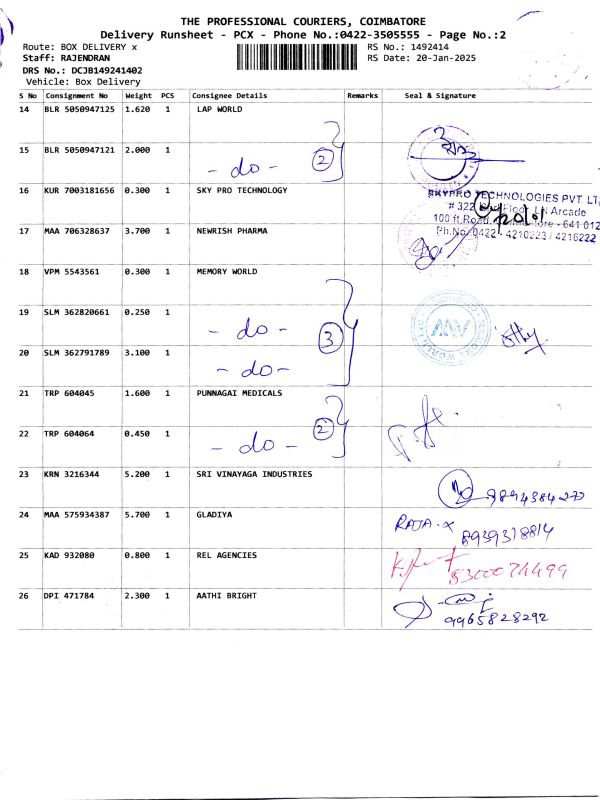 THE PROFESSIONAL COURIERS, COIMBATORE
Delivery Runsheet - PCX - Phone No.:0422-3505555 - Page No.:2
Route: BOX DELIVERY x
RS No.: 1492414
Staff: RAJENDRAN
RS Date: 20-Jan-2025
DRS No.: DCJB149241402
Vehicle: Box Delivery
S No Consignment No Weight PCS Consignee Details Remarks Seal & Signature
14 BLR 5050947125 1.620 1 LAP WORLD
15 BLR 5050947121 2.000 1
- do - 2
16 KUR 7003181656 0.300 1 SKY PRO TECHNOLOGY
SKYPRO TECHNOLOGIES PVT LT
# 322 Arcade
100 ft.Road, - 641 012
Ph.No. 0422 - 4210223 / 4216222
17 MAA 706328637 3.700 1 NEWRISH PHARMA
18 VPM 5543561 0.300 1 MEMORY WORLD
19 SLM 362820661 0.250 1
- do - 3
20 SLM 362791789 3.100 1
- do -
21 TRP 604045 1.600 1 PUNNAGAI MEDICALS
22 TRP 604064 0.450 1
- do - 2
23 KRN 3216344 5.200 1 SRI VINAYAGA INDUSTRIES
9894384277
24 MAA 575934387 5.700 1 GLADIYA
RAJA.X
8939318814
25 KAD 932080 0.800 1 REL AGENCIES
26 DPI 471784 2.300 1 AATHI BRIGHT
9965828292